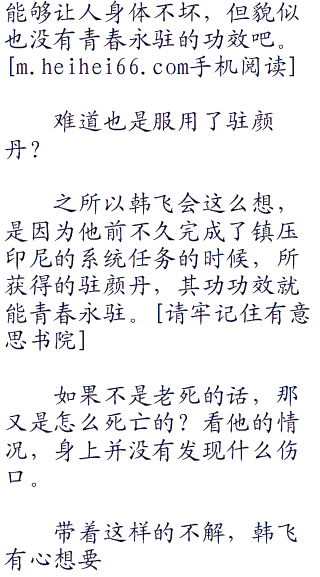 能够让人身体不坏，但貌似
也没有青春永驻的功效吧。
[m.heihei66.com手机阅读]
难道也是服用了驻颜
丹？
之所以韩飞会这么想，
是因为他前不久完成了镇压
印尼的系统任务的时候，所
获得的驻颜丹，其功功效就
能青春永驻。[请牢记住有意
思书院]
如果不是老死的话，那
又是怎么死亡的？看他的情
况，身上并没有发现什么伤
口。
带着这样的不解，韩飞
有心想要